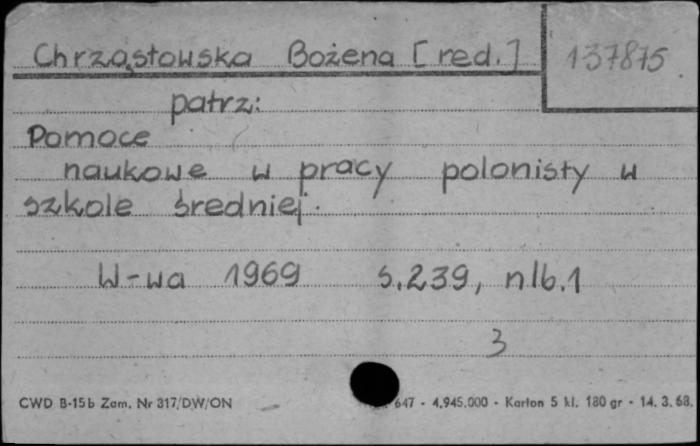 Chrząstowska Bożena [red.] 137875
patrz:
Pomoce
naukowe w pracy polonisty w
szkole średniej.
W-wa 1969 s.239, nlb.1
3
CWD B-15b Zam. Nr 317/DW/ON 647 - 4.945.000 - Karton 5 kl. 180 gr - 14. 3. 68.